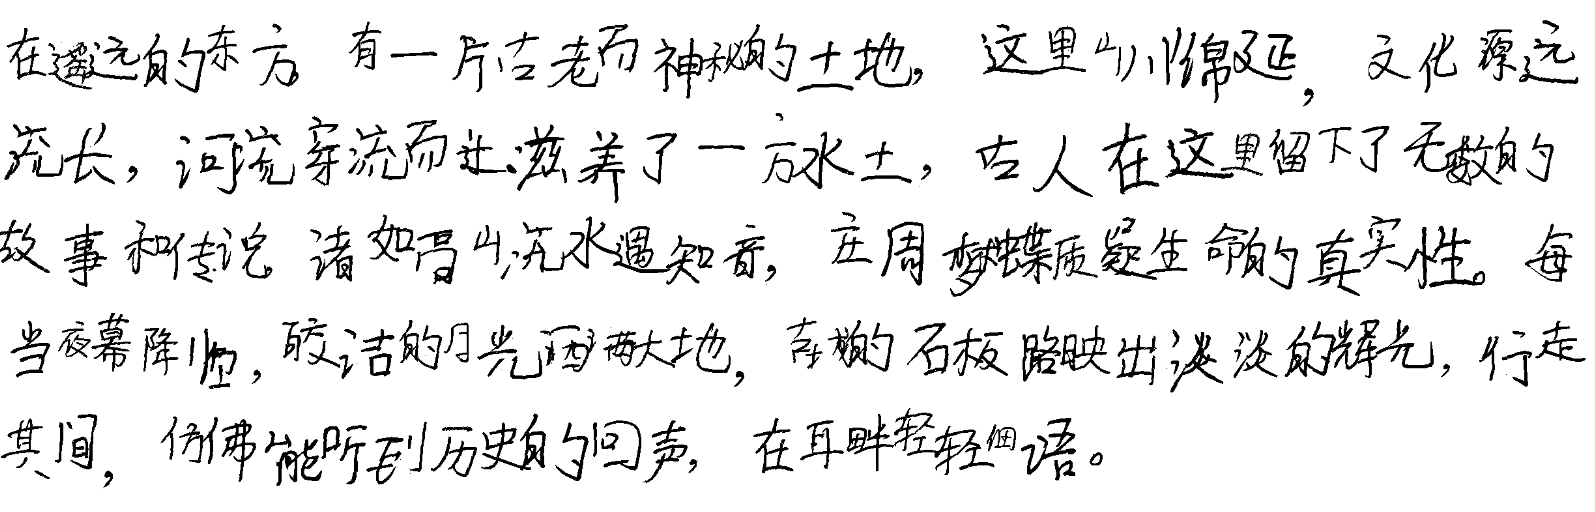 在遥远的东方,有一片古老而神秘的土地,这里山川绵延,文化源远
流长,河流穿流而过,滋养了一方水土,古人在这里留下了无数的
故事和传说,诸如高山流水遇知音,庄周梦蝶质疑生命的真实性。每
当夜幕降临,皎洁的月光洒满大地,古城的石板路映出淡淡的辉光,行走
其间,仿佛能听到历史的回声,在耳畔轻轻细语。